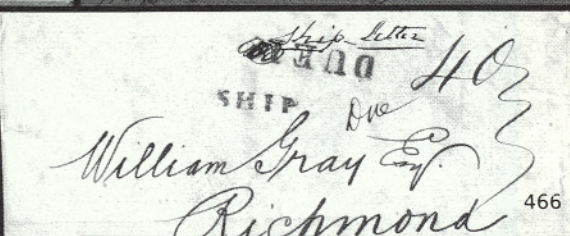 Ship Letter
DUE
40
SHIP
Due
William Gray Esq.
Richmond
466